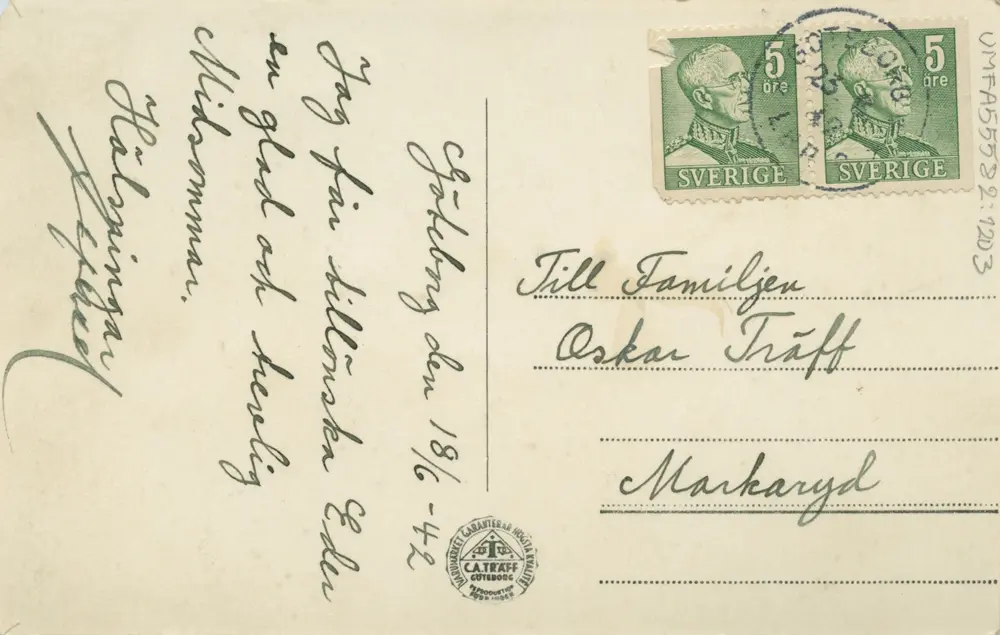 Göteborg den 18/6 - 42
Jag får tillönska Eder
en glad och trevlig
Midsommar.
Hälsningar
5
öre
SVERIGE
5
öre
SVERIGE
GÖTEBORG
Till Familjen
Oskar Träff
Markaryd
VARUMÄRKET GARANTERAR HÖGSTA KVALITET
C.A. TRÄFF
GÖTEBORG
REPRODUKTION
FÖRBJUDEN
UMFA55582:1203